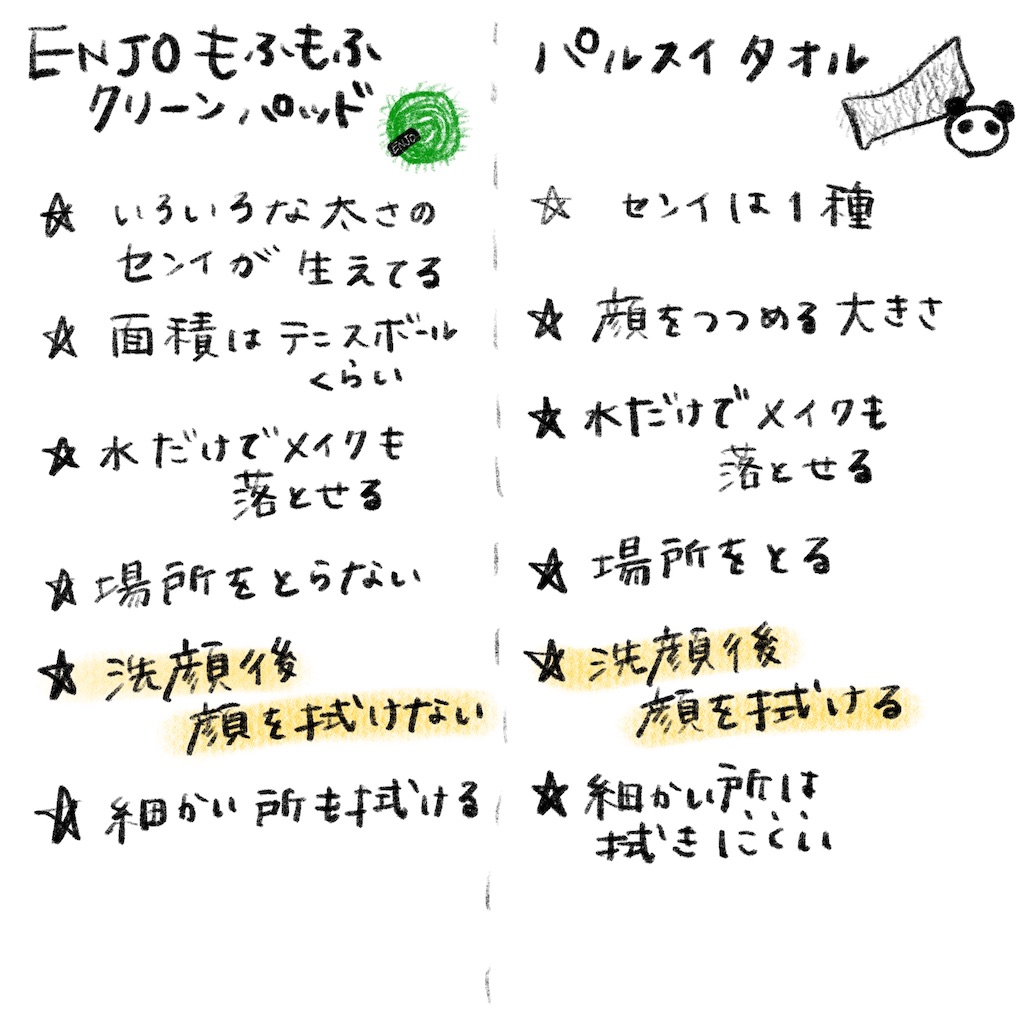 ENJOもふもふ
クリーンパッド
ENJO
☆ いろいろな太さの
センイが生えてる
☆ 面積はテニスボール
くらい
☆ 水だけでメイクも
落とせる
☆ 場所をとらない
☆ 洗顔後
顔を拭けない
☆ 細かい所も拭ける
パルスイタオル
☆ センイは1種
☆ 顔をつつめる大きさ
☆ 水だけでメイクも
落とせる
☆ 場所をとる
☆ 洗顔後
顔を拭ける
☆ 細かい所は
拭きにくい